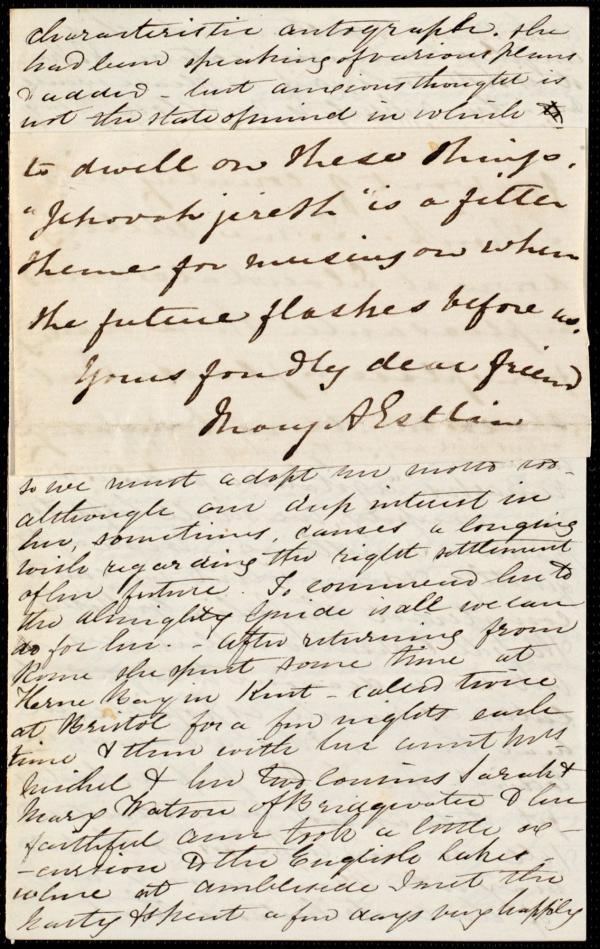 characteristic autograph. She
had been speaking of various plans
& added - but anxious thought is
not the state of mind in which
to dwell on these things.
"Jehovah jireth" is a fitter
theme for musing on when
the future flashes before us.
Yours fondly dear friend
Mary A Estlin
so we must adopt her motto too -
although our deep interest in
her, sometimes, causes a longing
wish regarding the right settlement
of her future. To commend her to
the Almighty Guide is all we can
do for her. - After returning from
Rome she spent some time at
Herne Bay in Kent - called twice
at Bristol for a few nights each
time & then with her aunt Mrs
Michel & her two cousins Sarah &
Mary Watson of Bridgwater & her
faithful Ann took a little ex-
-cursion to the English Lakes -
where at Ambleside I met the
party & spent a few days very happily